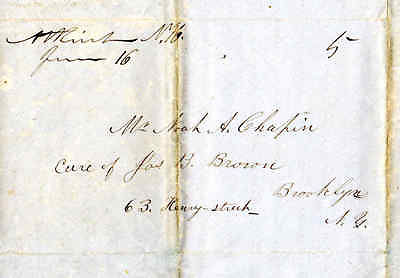 N.H. 5
June 16
Mr. Noah A. Chapin
Care of Jas B. Brown
Brooklyn
63. Henry-street
N. Y.